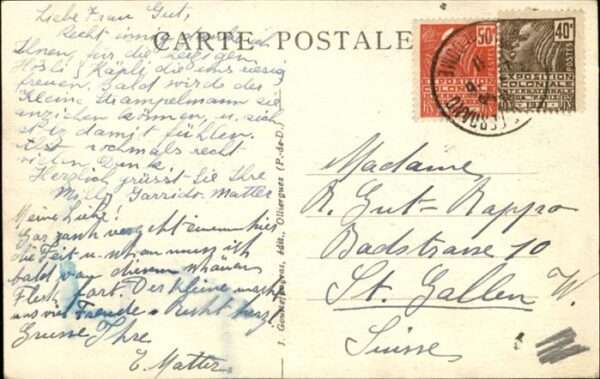 Liebe Frau Gut,
CARTE POSTALE
Recht innig danke ich
Ihnen für die
Hösli & Käpli, die uns riesig
freuen. Bald wird der
Kleine Strampelmann sie
anziehen können, u. sich
damit fühlen.
nochmals recht
vielen Dank.
Herzlich grüsst Sie Ihre
Milly Garrido-Matter
Meine Liebe!
Gar rasch vergeht einem hier
die Zeit u. nun muss ich
bald von diesem schönen
Fleck fort. Der Kleine macht
uns viel Freude. Recht herzl.
Grüsse Ihre
E. Matter
édit., Ollierguès (P.-de-D.)
50c
EXPOSITION
COLONIALE
INTERNATIONALE
PARIS
40c
POSTES
EXPOSITION
COLONIALE
INTERNATIONALE
PARIS
Madame
R. Gut-Rappo
Badstrasse 10
St. Gallen W.
Suisse